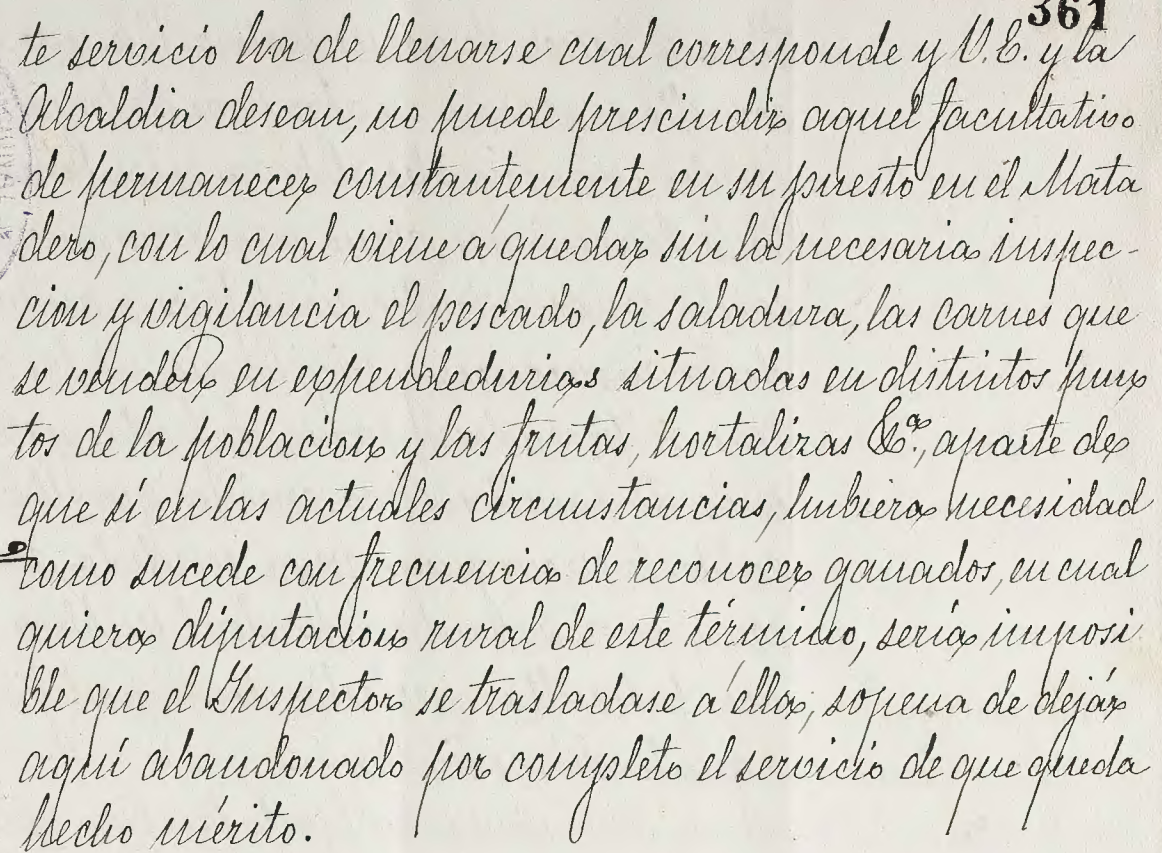 361
te servicio ha de llenarse cual corresponde y V.E. y la
Alcaldia desean, no puede prescindir aquel facultativo
de permanecer constantemente en su puesto en el Mata
dero, con lo cual viene a quedar sin la necesaria inspec-
cion y vigilancia el pescado, la saladura, las carnes que
se venden en expendedurias situadas en distintos pun
tos de la poblacion y las frutas, hortalizas &ª, aparte de
que sí en las actuales circunstancias, hubiera necesidad
como sucede con frecuencia de reconocer ganados, en cual
quiera diputacion rural de este término, sería imposi
ble que el Inspector se trasladase á ella, sopena de dejár
aquí abandonado por completo el servicio de que queda
hecho mérito.